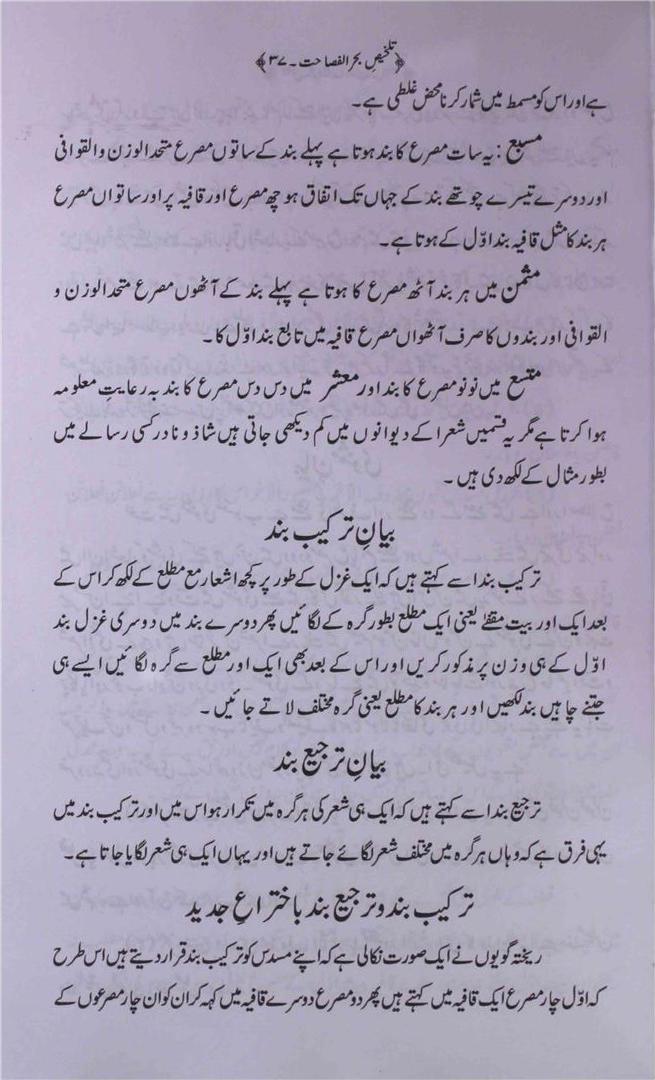 ﴿تلخیصِ بحر الفصاحت۔۳۷﴾
ہے اور اس کو مسمط میں شمار کرنا محض غلطی ہے۔
مسبع : یہ سات مصرع کا بند ہوتا ہے پہلے بند کے ساتوں مصرع متحد الوزن و القوافی
اور دوسرے تیسرے چوتھے بند کے جہاں تک اتفاق ہو چھ مصرع اور قافیہ پر اور ساتواں مصرع
ہر بند کا مثل قافیہ بند اوّل کے ہوتا ہے۔
مثمن میں ہر بند آٹھ مصرع کا ہوتا ہے پہلے بند کے آٹھوں مصرع متحد الوزن و
القوافی اور بندوں کا صرف آٹھواں مصرع قافیہ میں تابع بند اوّل کا۔
متسع میں نو نو مصرع کا بند اور معشر میں دس دس مصرع کا بند بہ رعایتِ معلومہ
ہوا کرتا ہے مگر یہ قسمیں شعرا کے دیوانوں میں کم دیکھی جاتی ہیں شاذ و نادر کسی رسالے میں
بطور مثال کے لکھ دی ہیں۔
بیانِ ترکیب بند
ترکیب بند اسے کہتے ہیں کہ ایک غزل کے طور پر کچھ اشعار مع مطلع کے لکھ کر اس کے
بعد ایک اور بیت مقفےٰ یعنی ایک مطلع بطور گرہ کے لگائیں پھر دوسرے بند میں دوسری غزل بند
اوّل کے ہی وزن پر مذکور کریں اور اس کے بعد بھی ایک اور مطلع سے گرہ لگائیں ایسے ہی
جتنے چاہیں بند لکھیں اور ہر بند کا مطلع یعنی گرہ مختلف لاتے جائیں۔
بیانِ ترجیع بند
ترجیع بند اسے کہتے ہیں کہ ایک ہی شعر کی ہر گرہ میں تکرار ہو اس میں اور ترکیب بند میں
یہی فرق ہے کہ وہاں ہر گرہ میں مختلف شعر لگائے جاتے ہیں اور یہاں ایک ہی شعر لگایا جاتا ہے۔
ترکیب بند و ترجیع بند با ختراعِ جدید
ریختہ گویوں نے ایک صورت نکالی ہے کہ اپنے مسدس کو ترکیب بند قرار دیتے ہیں اس طرح
کہ اوّل چار مصرع ایک قافیہ میں کہتے ہیں پھر دو مصرع دوسرے قافیہ میں کہہ کر ان کو ان چار مصرعوں کے